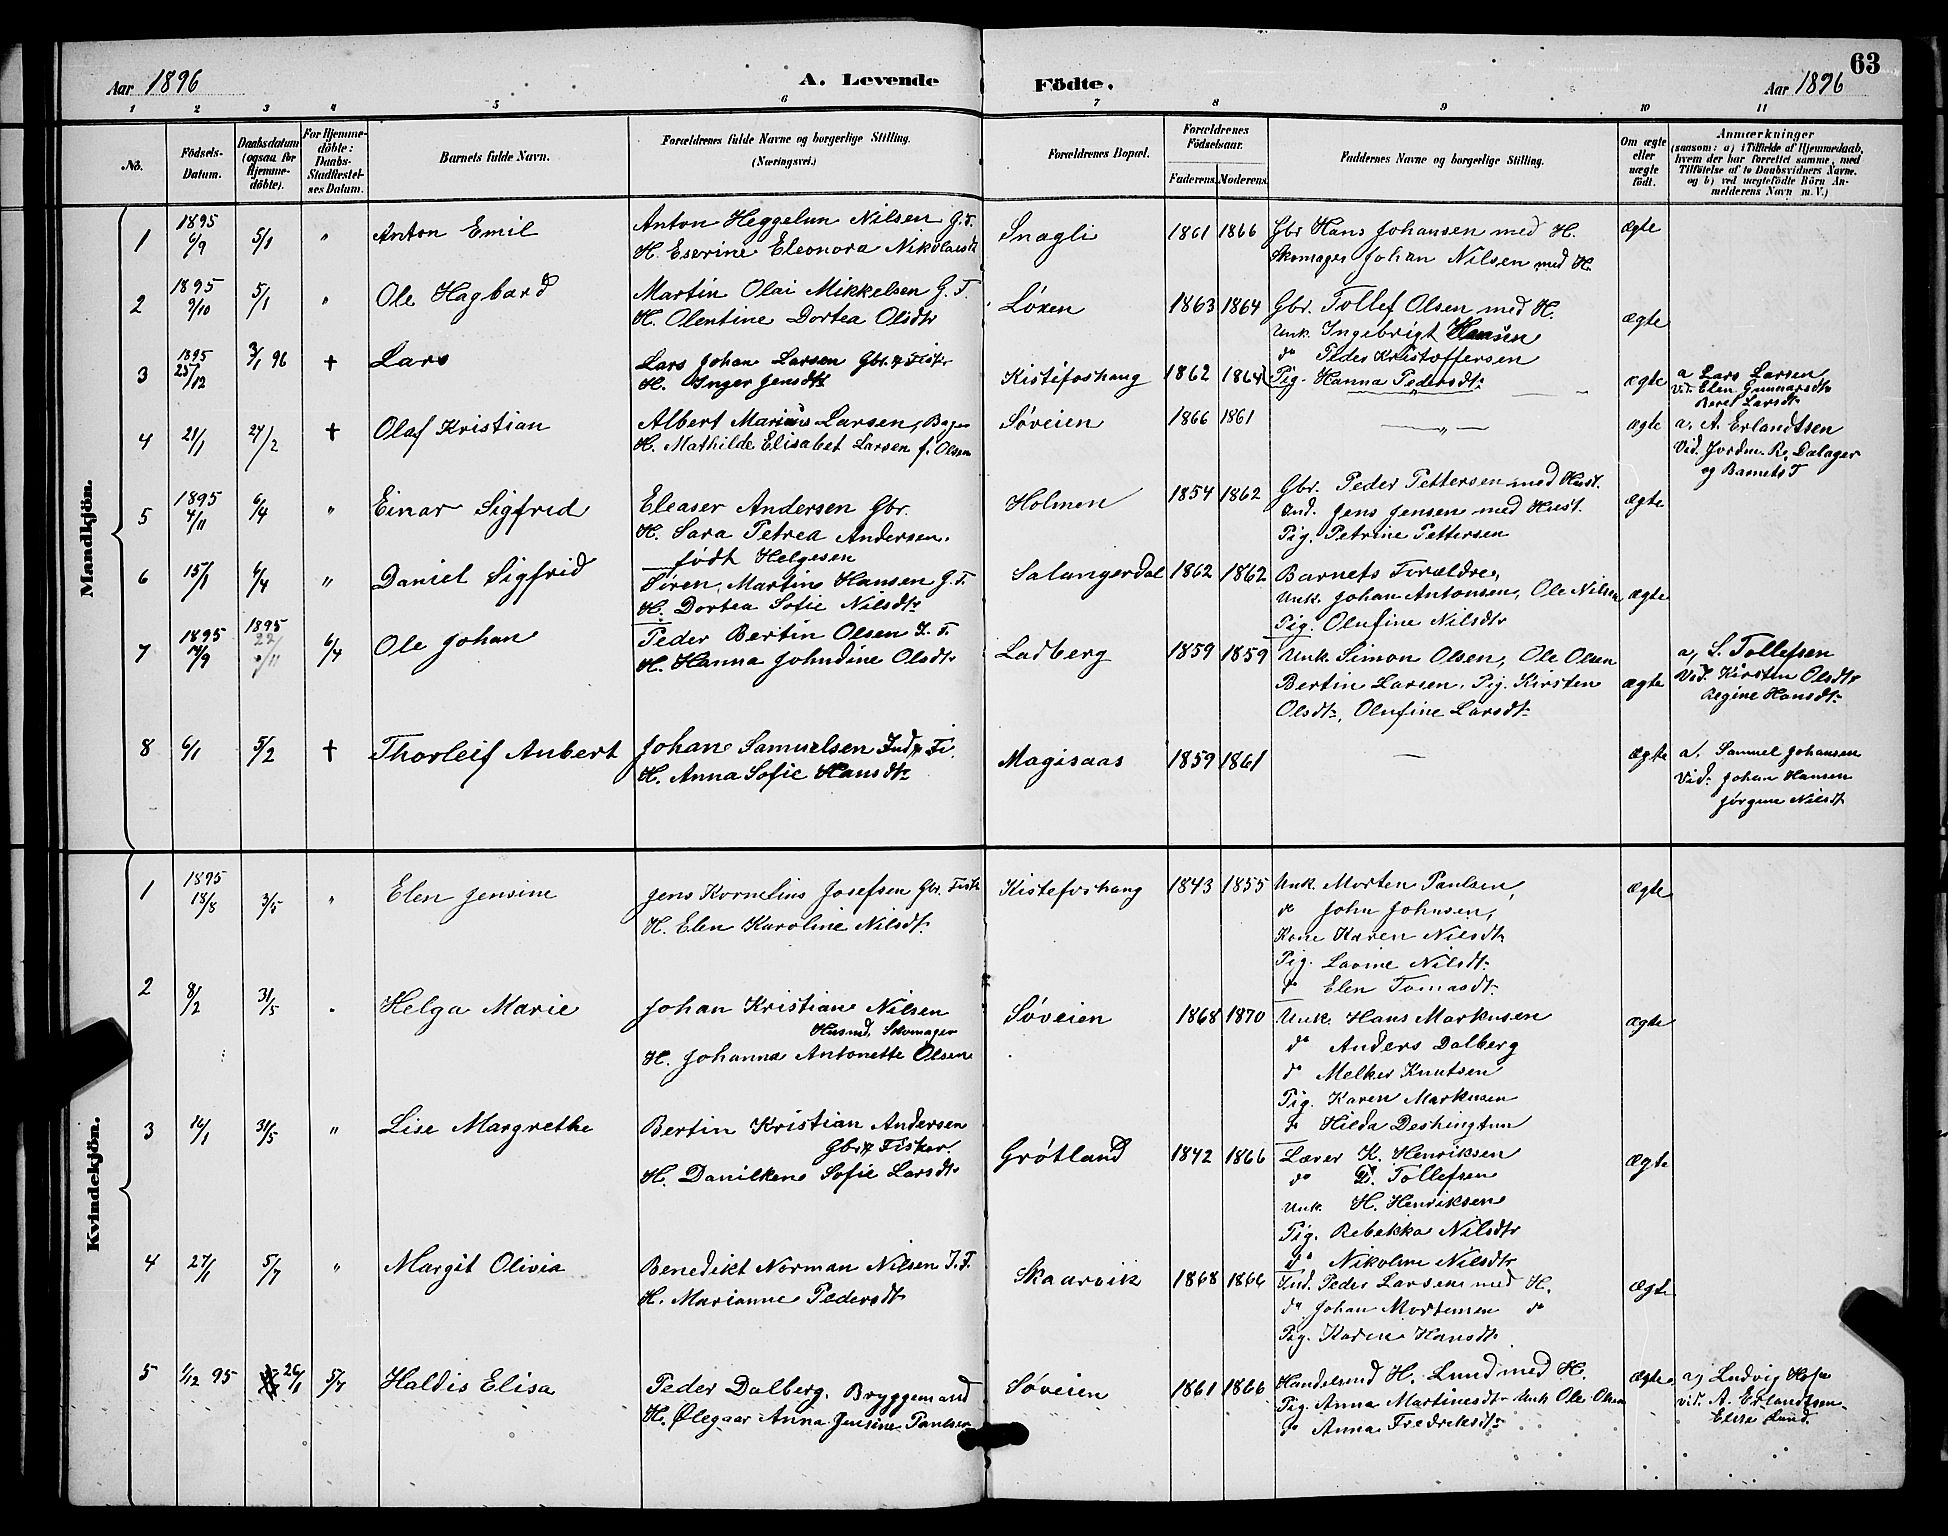 63
Aar 1896
A. Levende
Födte.
Aar 1896
1 2 3 4 5 6 7 8 9 10 11
No.
Födsels-Datum.
Daabsdatum (ogsaa for Hjemmedöbte).
For Hjemmedöbte: Daabs-Stadfæstelses Datum.
Barnets fulde Navn.
Forældrenes fulde Navne og borgerlige Stilling. (Næringsvei.)
Forældrenes Bopæl.
Forældrenes Födselsaar.
Faderens. Moderens.
Faddernes Navne og borgerlige Stilling.
Om ægte eller uægte födt.
Anmærkninger
(saasom: a) i Tilfælde af Hjemmedaab, hvem der har forrettet samme, med Tilföielse af to Daabsvidners Navne. og b) ved uægtefödte Börn Anmelderens Navn m. V.)
Mandkjön.
1 1895 6/9 5/1 " Anton Emil
Anton Heggelun Nilsen G.F.
H. Eserine Eleonora Nikolaisdt
Snagli 1861 1866
Gbr Hans Johansen med H.
Skomager Johan Nilsen med H.
ægte
2 1895 9/10 5/1 " Ole Hagbard
Martin Olai Mikkelsen G.F.
H. Olentine Dortea Olsdtr
Løxen 1863 1864
Gbr. Tollef Olsen med H.
Unk. Ingebrigt Hansen
do Peder Kristoffersen
Pig. Hanna Pedersdt.
ægte
3 1895 25/12 3/1 96 + Lars
Lars Johan Larsen Gbr. & Fisker
H. Inger Jensdtr
Kistefoshaug 1862 1864
"
ægte
a Lars Larsen
Vid. Elen Gunnarsdtr
Beret Larsdtr
4 21/1 24/2 + Olaf Kristian
Albert Marius Larsen, Bager
H. Mathilde Elisabet Larsen f. Olsen
Søveien 1866 1861
"
ægte
a, A. Erlandtsen
Vid. Jordm. R. Dalager
og Barnets F
5 1895 4/11 6/4 " Einar Sigfred
Eleaser Andersen Gbr.
H. Sara Petrea Andersen.
født Helgesen
Holmen 1854 1862
Gbr. Peder Pettersen med Hust.
Ind. Jens Jensen med Hust.
Pig. Petrine Pettersen
ægte
6 15/1 6/4 " Daniel Sigfrid
Søren Martin Hansen G.F.
H. Dortea Sofie Nilsdtr
Salangerdal 1862 1862
Barnets Forældre,
Unk. Johan Antonsen, Ole Nilsen
Pig. Olufine Nilsdtr
ægte
7 1895 14/9 1895 22/11 6/4 Ole Johan
Peder Bertin Olsen I.F.
H. Hanna Johndine Olsdtr
Ladberg 1859 1859
Unk. Simon Olsen, Ole Olsen
Bertin Larsen. Pig. Kirsten
Olsdtr, Olufine Larsdtr
ægte
a, S. Tollefsen
Vid. Kirsten Olsdtr
Regine Hansdtr
8 6/1 5/2 + Thorleif Anbert
Johan Samuelsen Ind. & Fi.
H. Anna Sofie Hansdtr
Magisaas 1859 1861
—
ægte
a, Samuel Johansen
Vid. Johan Hansen
Jørgine Nilsdt
Kvindekjön.
1 1895 18/8 3/5 " Elen Jensine
Jens Kornelius Josefsen Gbr. Fisk
H. Elen Karoline Nilsdtr
Kistefoshaug 1843 1855
Unk. Morten Paulsen,
do John Johnsen,
Kone Karen Nilsdtr
Pig. Lavine Nilsdtr
do Elen Tomasdtr
ægte
2 8/2 31/5 " Helga Marie
Johan Kristian Nilsen
Husmd. Skomager
H. Johanna Antonette Olsen
Søveien 1868 1870
Unk. Hans Markusen
do Anders Dalberg
do Melker Knutsen
Pig. Karen Markusen
do Hilda Deshington
ægte
3 16/1 31/5 " Lise Margrethe
Bertin Kristian Andersen
Gbr. & Fisker.
H. Danilkena Sofie Larsdtr
Grøtland 1842 1866
Lærer K. Henriksen
do Tollefsen
Unk. H. Henriksen
Pig. Rebekka Nilsdtr
do Nikoline Nilsdtr
ægte
4 27/1 5/7 " Margit Olivia
Benedikt Norman Nilsen I.F.
H. Marianne Pedersdtr
Skaarvik 1868 1866
Ind. Peder Larsen med H.
do Johan Mortensen do
Pig. Karen Hansdtr
ægte
5 1/12 95 26/1 5/7 Haldis Elisa
Peder Dalberg, Bryggemand
H. Ølegaar Anna Jensine Paulsen
Søveien 1861 1866
Handelsmd H. Lund med H.
Pig. Anna Martinesdtr Unk Ole Olsen
do Anna Fredriksdtr
ægte
a, Ludvig
vid. A. Erlandtsen
Elise Lund.